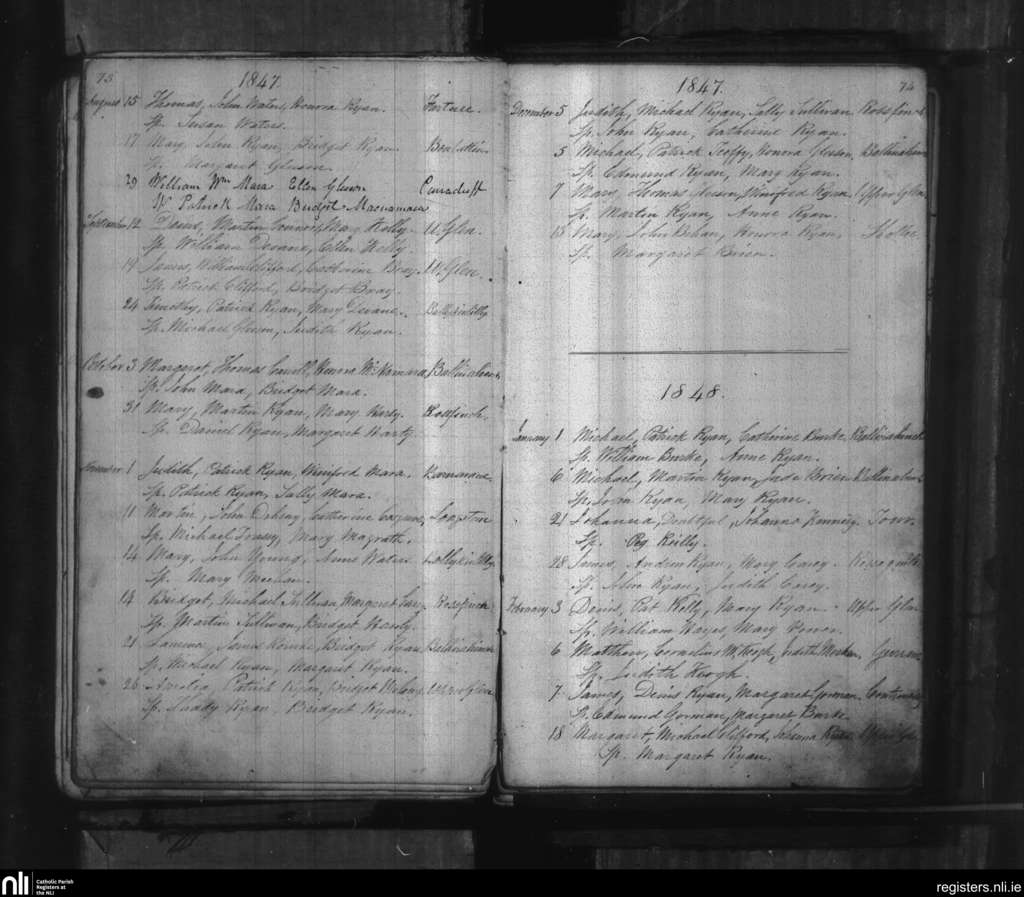 73
1847.
August 15 Thomas, John Waters, Honora Ryan. Forture.
Sp. Susan Waters.
17 Mary, John Ryan, Bridget Ryan
Sp. Margaret Gleeson.
29 William Wm Mara Ellen Gleeson Curraduff
Sp Patrick Mara Bridget Macnamara
September 12 Denis, Martin Connors, Mary Kelly. U. Glen.
Sp. William Devane, Ellen Kelly.
19 James, William Clifford, Catherine Bray. U. Glen.
Sp. Patrick Clifford, Bridget Bray.
24 Timothy, Patrick Ryan, Mary Devane.
Sp. Michael Gleeson, Judith Ryan.
October 3 Margaret, Thomas Carroll, Honora McNamara,
Sp. John Mara, Bridget Mara.
31 Mary, Martin Ryan, Mary Harty. Rossfinch.
Sp. Daniel Ryan, Margaret Harty.
November 1 Judith, Patrick Ryan, Winford Mara.
Sp. Patrick Ryan, Sally Mara.
11 Martin, John Catherine
Sp. Michael Mary Magrath.
14 Mary, John Young, Anne Waters
Sp. Mary Meehan.
14 Bridget, Michael Sullivan, Margaret Rossfinch
Sp. Martin Sullivan, Bridget Harty.
21 James Bridget Ryan
Sp. Michael Ryan, Margaret Ryan.
26 Patrick Ryan, Bridget Upper Glen
Sp. Thady Ryan, Bridget Ryan.
1847. 74
December 5 Judith, Michael Ryan, Sally Sullivan Rossfinch
Sp. John Ryan, Catherine Ryan.
5 Michael, Patrick Honora Gleeson,
Sp. Edmund Ryan, Mary Ryan.
7 Mary, Thomas Winifred Ryan, Upper Glen
Sp. Martin Ryan, Anne Ryan.
15 Mary, John Behan, Honora Ryan,
Sp. Margaret Brien.
1848.
January 1 Michael, Patrick Ryan, Catherine Burke,
Sp. William Burke, Anne Ryan.
6 Michael, Martin Ryan, Jude Brien
Sp. Ryan Mary Ryan.
21 Johanna, Doubtful, Johanna Kennedy. Town.
Sp. Peg Reilly.
28 James, Andrew Ryan, Mary Carey.
Sp. John Ryan, Judith Carey.
February 3 Denis, Pat Kelly, Mary Ryan. Upper Glen
Sp. William Hayes, Mary Power.
6 Matthew, Cornelius McKeogh, Judith
Sp. Judith Keogh.
7 James, Denis Ryan, Margaret Gorman,
Sp. Edmund Gorman, Margaret Burke.
18 Margaret, Michael Clifford, Johanna Ryan Upper Glen
Sp. Margaret Ryan.
nli
Catholic Parish
Registers at
the NLI
registers.nli.ie